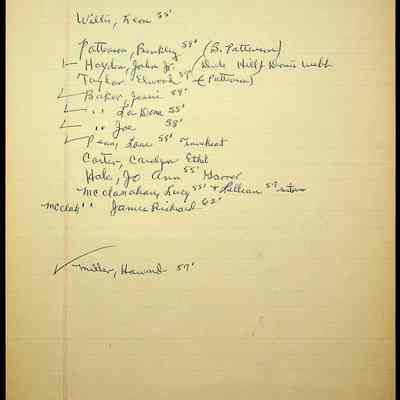 Willis, Leon 55'
Patterson, Binkley 58' (B. Patterson)
Hayden, John Jr. Webb
Taylor Elwood 59' (Patterson)
Baker, Jessie 59'
" La Dona 55'
" Joe 58'
Penn, Lane 58'
Carter, Carolyn Ethel
Hale, Jo Ann 55'
McClanahan, Lucy 55' & Lillian 57' sisters
McClah " James Richard 62'
Miller, Howard 57'